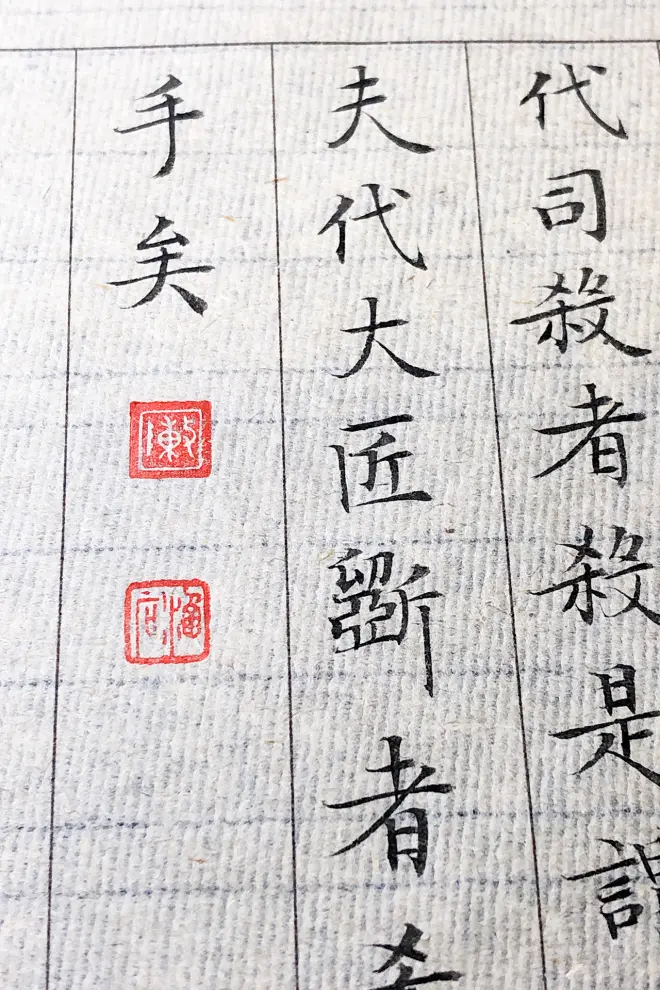 代司殺者殺是謂
夫代大匠斲者希
手矣